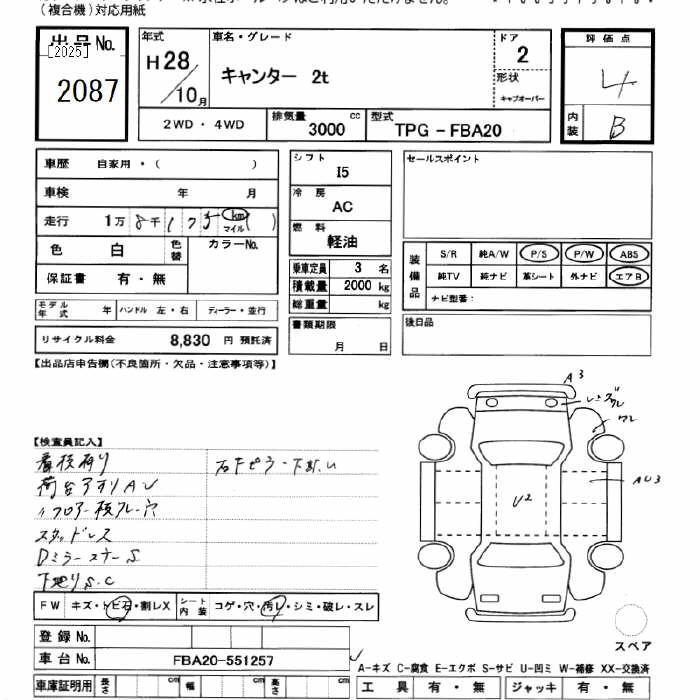 (複合機)対応用紙
出品No.
[2025]
2087
年式
H28/10月
車名・グレード
キャンター 2t
ドア
2
形状
キャブオーバー
評価点
4
内装
B
2WD・4WD
排気量 3000 cc
型式 TPG-FBA20
車歴 自家用・( )
車検 年 月
走行 1万 8千 175 km マイル ( )
色 白 色替 カラーNo.
保証書 有・無
モデル年式 年 ハンドル 左・右 ディーラー・並行
リサイクル料金 8,830 円 預託済
シフト
I5
冷房
AC
燃料
軽油
乗車定員 3 名
積載量 2000 kg
総重量 kg
書類期限
月 日
セールスポイント
装備品
S/R 純A/W P/S P/W ABS
純TV 純ナビ 革シート 外ナビ エアB
ナビ型番:
後日品
【出品店申告欄(不良箇所・欠品・注意事項等)】
【検査員記入】
看板有り
荷台アオリAU
〃フロアー板ワレ・穴
スタッドレス
DミラーステーS
下廻りS.C
A3
ワレ
AU3
U2
FW キズ・トビ石・割レX シート内装 コゲ・穴・汚レ・シミ・破レ・スレ
登録No.
車台No. FBA20-551257
スペア
A-キズ C-腐食 E-エクボ S-サビ U-凹ミ W-補修 XX-交換済
車庫証明用 長さ cm 幅 cm 高さ cm
工具 有・無 ジャッキ 有・無